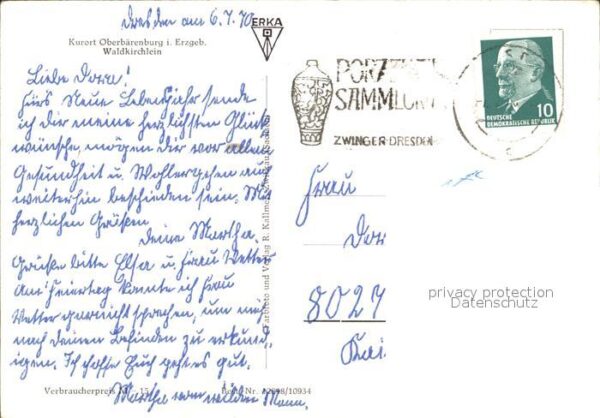 Dresden am 6.7.70
ERKA
Kurort Oberbärenburg i. Erzgeb.
Waldkirchlein
Liebe Dora!
Fürs Neue Lebensjahr sende
ich Dir meine herzlichsten Glück
wünsche, mögen Dir vor allem
Gesundheit u. Wohlergehen auch
weiterhin beschieden sein. Mit
herzlichen Grüßen
Deine Martha.
Grüße bitte Elsa u. Frau Vetter
Am Feiertag konnte ich Frau
Vetter garnicht sprechen, um mich
nach Deinem Befinden zu erkund
igen. Ich hoffe Euch geht es gut.
Martha vom wilden Mann.
Verbraucherpreis 15
Best.-Nr. 10934
Farbfoto und Verlag R. Kallmer
PORZELL
SAMMLUN
ZWINGER-DRESDEN
10
DEUTSCHE
DEMOKRATISCHE REPUBLIK
Frau
Dor
8027
Kai
privacy protection
Datenschutz